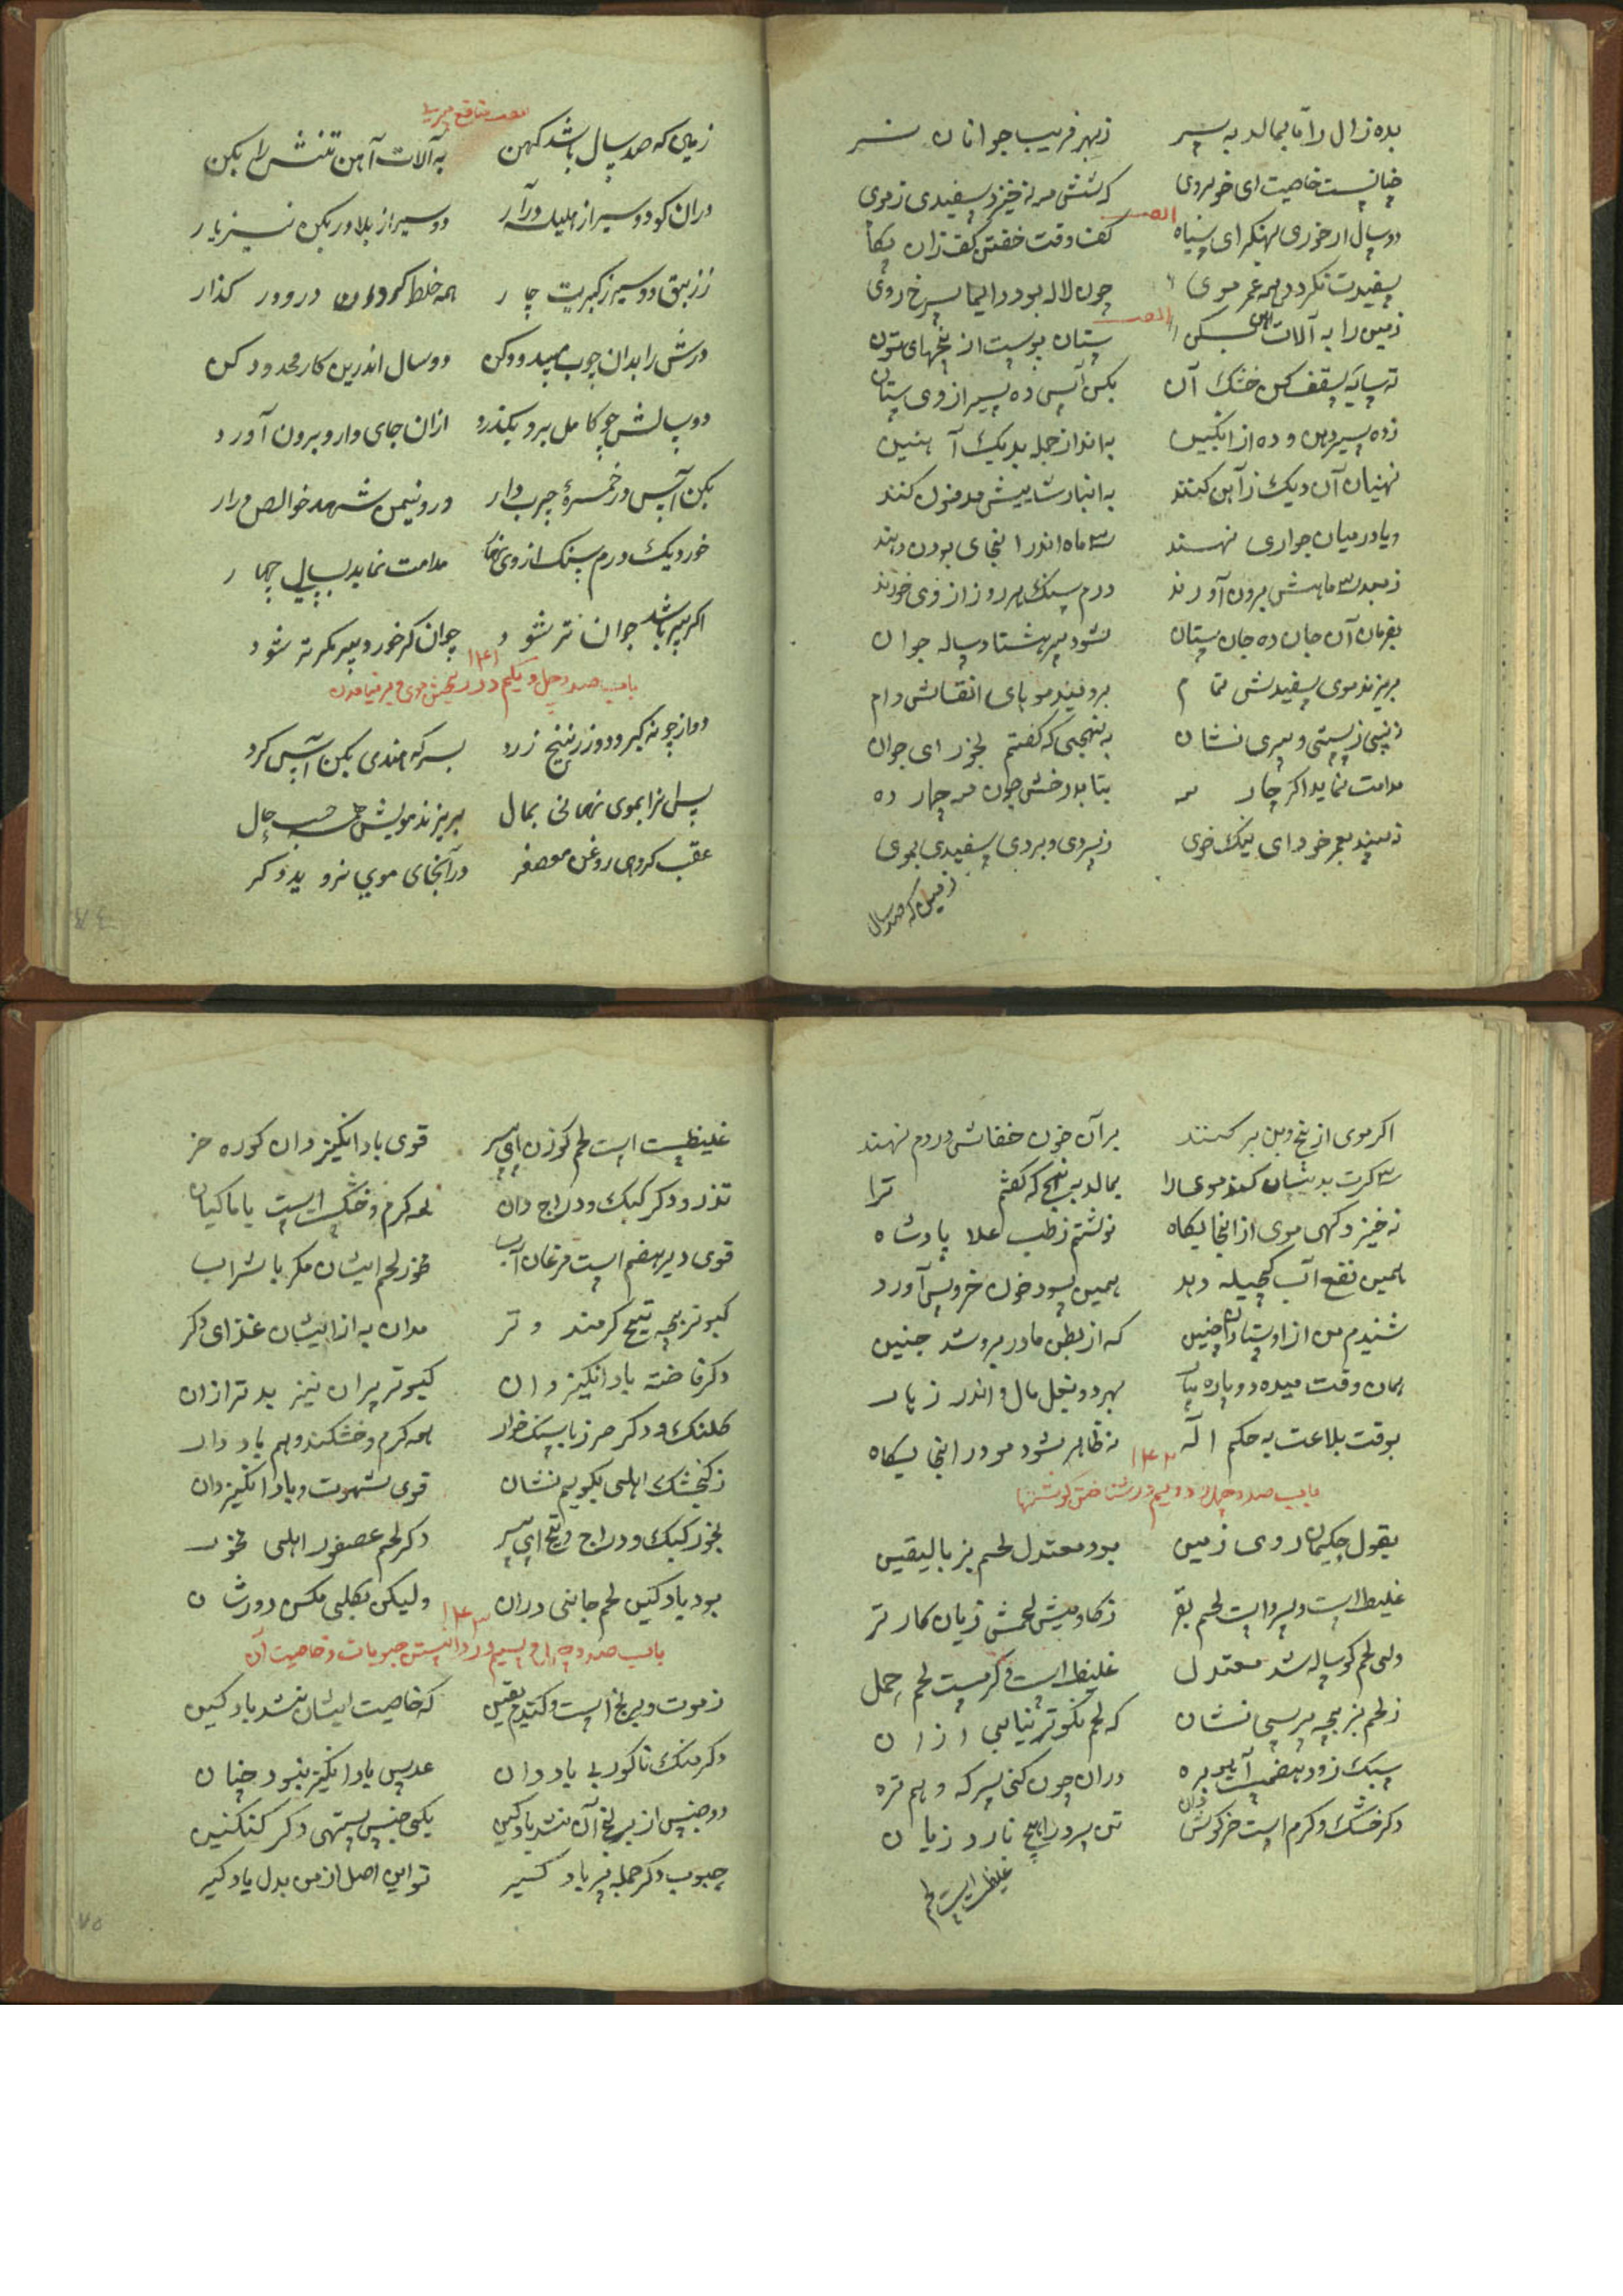 بده زال را تا بمالد به سر زبهر فریب جوانان نر
چنانست خاصیت ای خوبروی که نشش مه نه خیزد سفیدی زموی
ایضا
دو سال ار خوری بهنکرای سیاه کف وقت خفتن کف زان پکا
سفیدت نکردد همه عمر موی چون لاله بود دایما سرخ روی
ایضا
زمین را به آلات آهن بکن ستان پوست از بیخهای
ته سایه سقف کن خشک آن بکن آس ده سیر از وی ستان
زده سیر و ده از انکبین به انداز جمله بدیک آهنین
نهنبان آن دیک زآهن کنند به انبار شالیش مدفون کنند
ویا در میان جواری نهند سه ماه اندر انجای بودن دهند
زبعد سه ماهش برون آورند درم سنک هر روز از وی خورند
بفرمان آن جان ده جان ستان شود پیر هشتاد ساله جوان
بریزند موی سفیدش تمام برویند موهای
نبینی زسستی و پیری نشان به نهجی که کفتم بخور ای جوان
مدامت نماید اکر چار مه بتابد رخش چون مه چارده
نبیند بعمر خود ای نیک خوی زپیری و بردی سفیدی بموی
زمین که صد سال
زمین که صد سال باشد کهن به آلات آهن تنش را بکن
دران کو دو سیر از هلیله درآر دو سیر از بلادر بکن نیز یار
ززیبق دو سیر زکبریت چار همه خلط کرده درو در کذار
درش را بدان چوب مسدود کن دو سال اندرین کار محدود کن
دو سالش چو کامل برو بکذرد ازان جای دارو برون آورد
بکن آس در خمره چرب دار درو نیمن شهد خالص درار
خورد یک درم سنک از وی نهار مدامت نماید بسال چهار
اکر پیر باشد جوان تر شود جوان کر خورد پیر کمتر شود
باب صد و چهل و یکم در ریختن موی و بر نیامدن ۱۴۱
دو از چونه کیر و دو زرنیخ زرد بسرکه هندی بکن آس کرد
پس انرا بموی نهانی بمال بریزند مویش همه حسب حال
عقب کر دهی روغن معصفر درآنجای موی نروید دکر
اکر موی از بیخ و بن بر کنند بر آن خون خفاش در دم نهند
سه کرت بدینسان کند موی را بمالد به نهج که کفتم ترا
نه خیزد کهی موی از انجایکاه نوشتم زطب علا پادشاه
همین نفع دهد همین سود خون خروس آورد
شنیدم من از اوستادان چنین که از بطن مادر برو شد جنین
همان وقت میده دو باره بهر دو بغل مال و اندر زهار
بوقت بلاغت به حکم اله نه ظاهر شود مو در انجایکاه
باب صد و چهل و دویم در شناختن کوشتها ۱۴۲
بقول حکیمان روی زمین بود معتدل لحم بز بالیقین
غلیظ است و سرد است لحم بقر زکاومیش لحمش زیان کارتر
ولی لحم کوساله شد معتدل غلیظ است و کرمست لحم جمل
زلحم بز بچه پرسی نشان که لحم نکوتر نیابی ازان
سبک زود هضمست آهو بره دران چون کنی سرکه و هم تره
دکر خشک و کرم است خرکوش دان تن سرد را هیچ نارد زیان
غلیظ است لحم
غلیظست است لحم کوزن ای پسر قوی باد انکیز دان کوره خر
تذرو و دکر کبک و دراج دان همه کرم و خشک است یا ماکیان
قوی دیر هضم است مرغان آب مخور لحم ایشان مکر با شراب
کبوتر بچه تیهج کرمند و تر مدان به از ایشان غذای دکر
دکر فاخته باد انکیز دان کبوتر پران نیز بدتر ازان
کلنک و دکر خرز با سنک خوار همه کرم و خشکند و هم باد دار
زکنجشک اهلی بکویم نشان قوی شهوت و باد انکیز دان
بخور کبک و دراج و تیهج ای پسر دکر لحم عصفور اهلی مخور
بود باد کین لحم جانبی دران ولیکن بکلی مکس دور شان
باب صد و چهل و سیم در دانستن حبوبات و خاصیت آن ۱۴۳
زموت و برنج است و کندم یقین که خاصیت ایشان نشد باد کین
دکر منک تاکور بی باد دان عدس باد انکیز نبود چنان
دو جنس از برنج آن نشد باد کین یکی جنس ستهی دکر کنکنین
حبوب دکر جمله پر باد کیر تو این اصل از من بدل یاد کیر